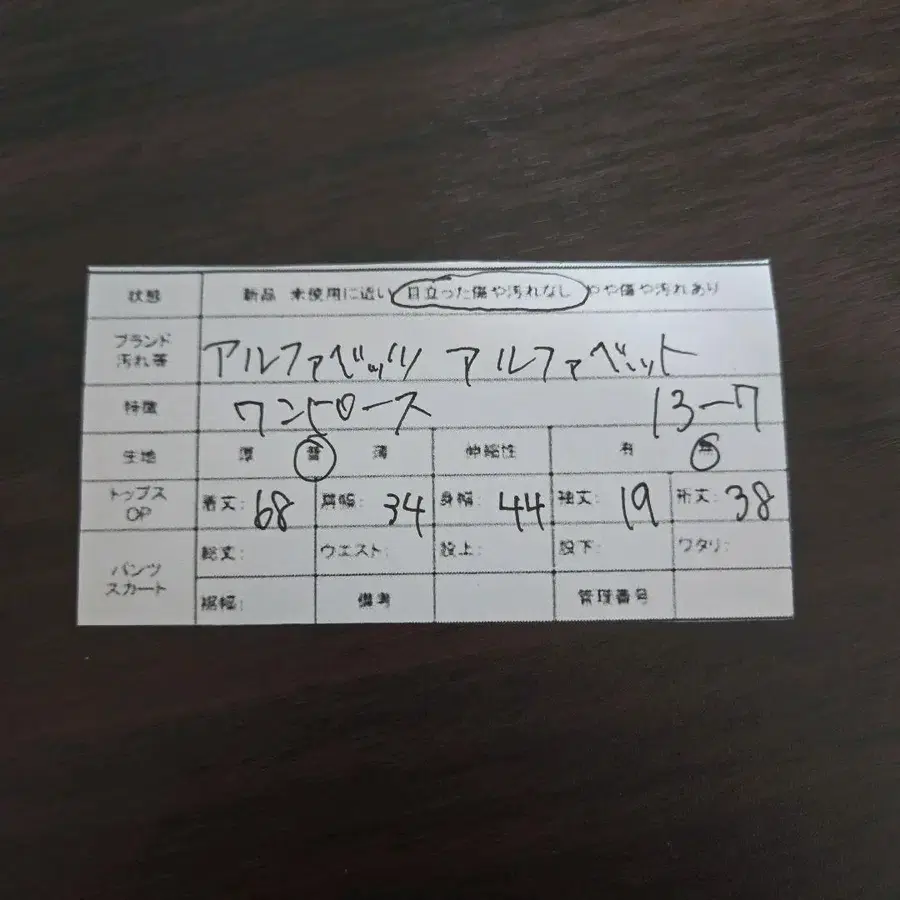 状態 新品 未使用に近い 目立った傷や汚れなし やや傷や汚れあり
ブランド 汚れ等 アルファベッツ アルファベット
特徴 ワンピース 13-7
生地 厚 普 薄 伸縮性 有 無
トップス OP 着丈: 68 肩幅: 34 身幅: 44 袖丈: 19 裄丈: 38
パンツ スカート 総丈: ウエスト: 股上: 股下: ワタリ:
裾幅: 備考 管理番号